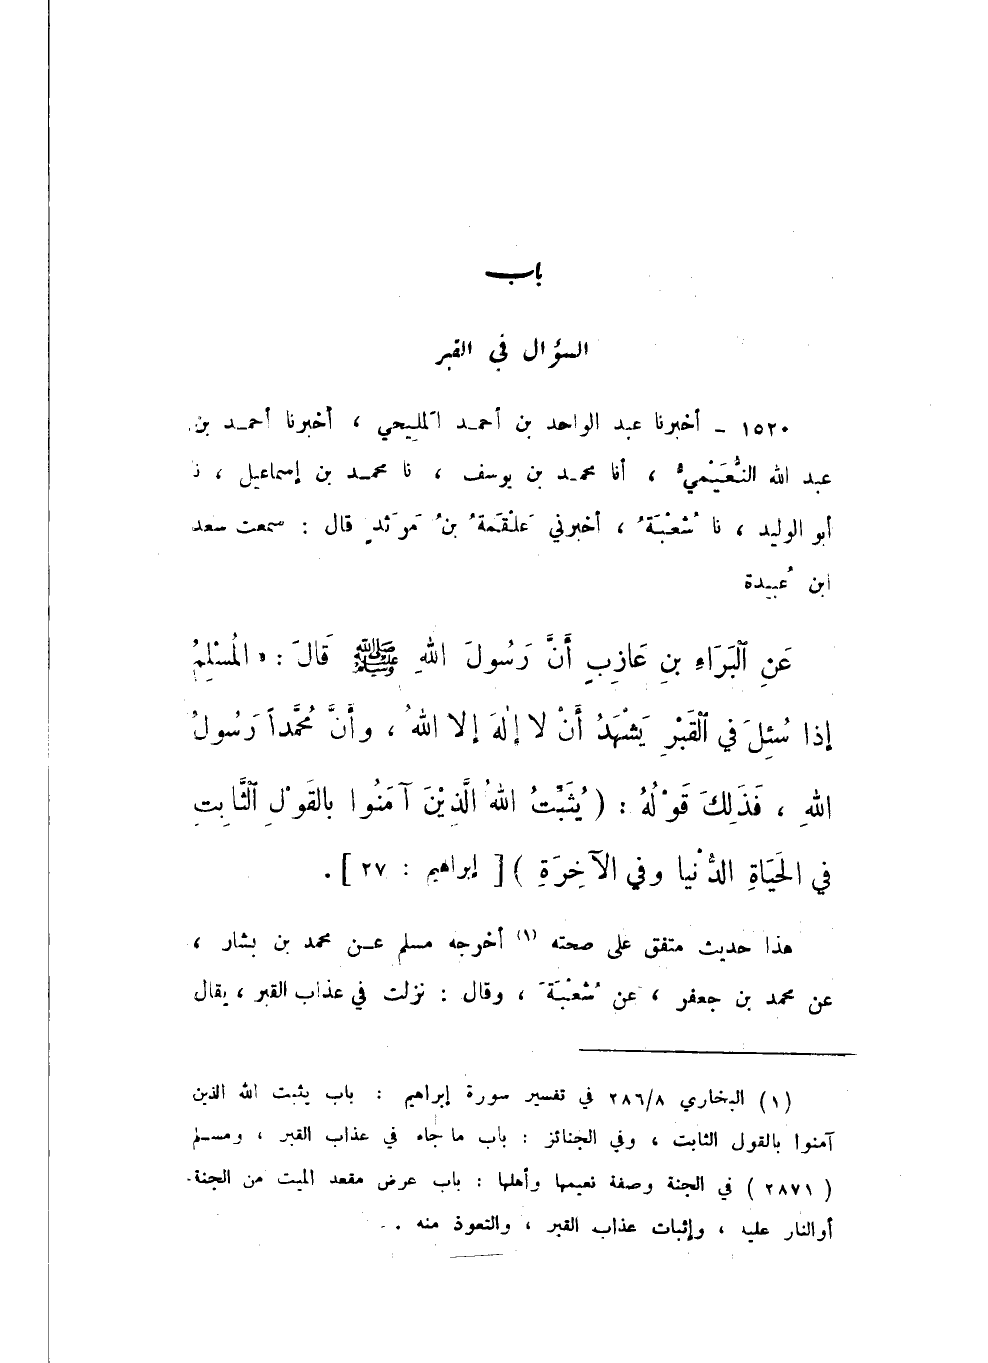 باب
السؤال في القبر
١٥٢٠ – أخبرنا عبد الواحد بن أحمـد المَليحي ، أخبرنا أحمـد بن
عبد الله النُّعَيْميُّ ، أنا محمـد بن يوسف ، نا محمـد بن إسماعيل ، نا
أبو الوليد ، نا شُعْبَةُ ، أخبرني عَلْقَمَةُ بنُ مَرْثَدٍ قال : سمعت سعد
ابن عُبيدة
عَنِ ٱلْبَرَاءِ بنِ عَازِبٍ أَنَّ رَسُولَ اللهِ ﷺ قَالَ : « المُسْلِمُ
إذا سُئِلَ في ٱلْقَبْرِ يَشْهَدُ أَنْ لا إلٰهَ إلا اللهُ ، وأَنَّ مُحمَّداً رَسُولُ
اللهِ ، فَذَلِكَ قَوْلُهُ : ( يُثَبِّتُ اللهُ الَّذِيْنَ آمَنُوا بالقَوْلِ ٱلثَّابِتِ
في الحَيَاةِ الدُّنْيا وفي الآخِرَةِ ) [ إبراهيم : ٢٧ ] .
هذا حديث متفق على صحته (١) أخرجه مسلم عـن محمد بن بشار ،
عن محمد بن جعفر ، عن شُعْبَةَ ، وقال : نزلت في عذاب القبر ، يقال
(١) البخاري ٢٨٦/٨ في تفسير سورة إبراهيم : باب يثبت الله الذين
آمنوا بالقول الثابت ، وفي الجنائز : باب ما جاء في عذاب القبر ، ومسـلم
( ٢٨٧١ ) في الجنة وصفة نعيمها وأهلها : باب عرض مقعد الميت من الجنة
أوالنار عليه ، وإثبات عذاب القبر ، والتعوذ منه .